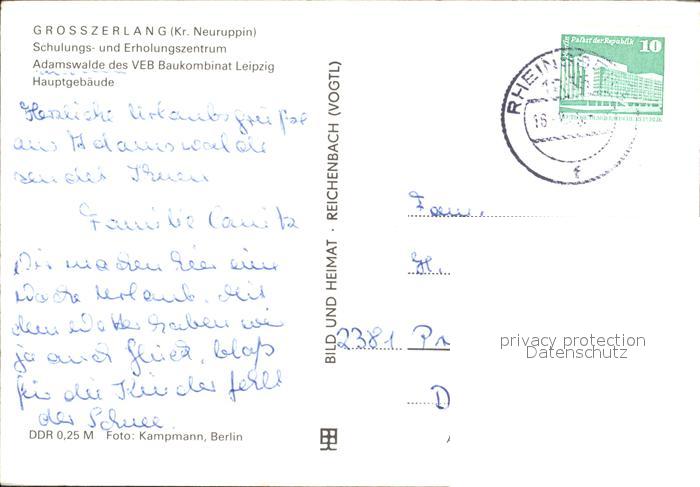 GROSSZERLANG (Kr. Neuruppin)
Schulungs- und Erholungszentrum
Adamswalde des VEB Baukombinat Leipzig
Hauptgebäude
Herzliche Urlaubsgrüße
aus Adamswalde
sendet Ihnen
Familie
Wir machen hier eine
Woche Urlaub. Mit
dem Wetter haben wir
ja auch Glück, bloß
für die Kinder fehlt
der Schnee.
DDR 0,25 M Foto: Kampmann, Berlin
BILD UND HEIMAT · REICHENBACH (VOGTL)
Palast der Republik 10
Fam.
H.
2381 Pr
D
privacy protection
Datenschutz